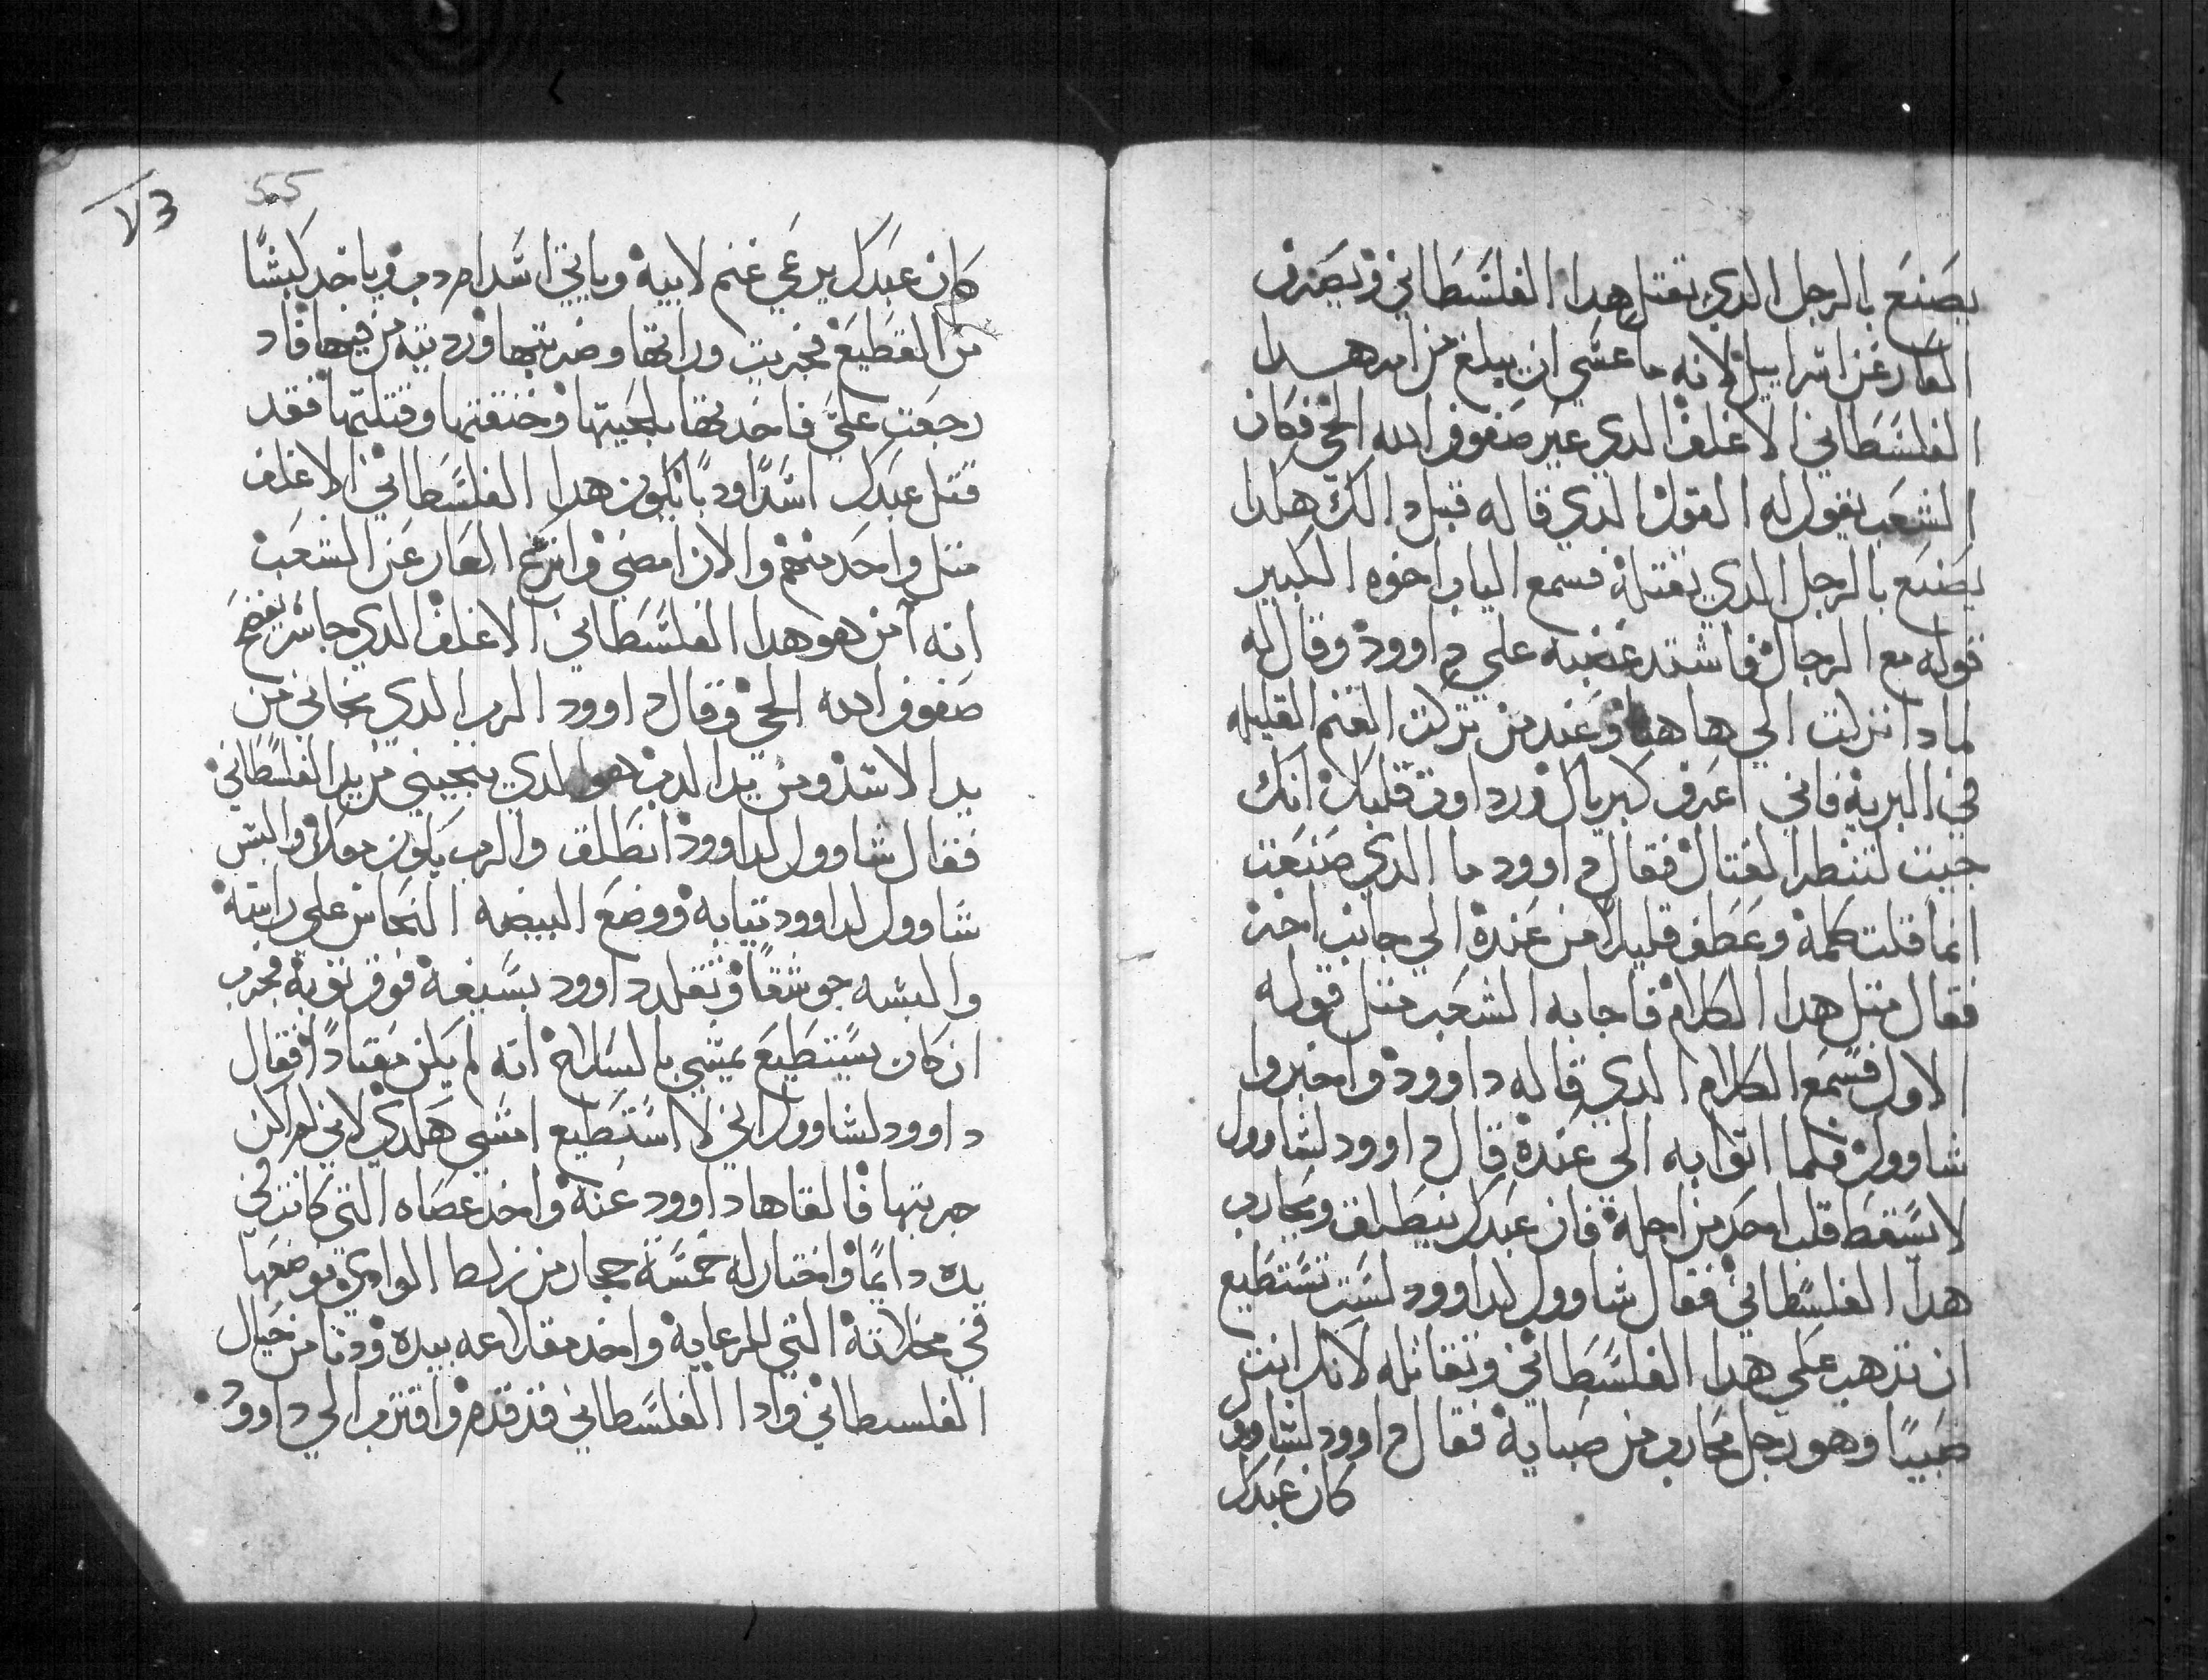 يصنع بالرجل الدي يقتل هدا الفلسطاني ويصرف
العار عن اسراييل لانه ما عسي ان يبلغ من امر هدا
الفلسطاني الاغلف الدي عير صفوف الله الحي فكان
الشعب يقول له القول الدي قاله قبل دالك هكدا
يصنع بالرجل الدي يقتله فسمع الياب اخوه الكبير
قوله مع الرجال فاشتد غضبه علي داوود وقال له
لمادا نزلت الي هاهنا وعند من تركت الغنم القليله
في البرية فاني اعرف كبرياك ورداوة قلبك انك
جيت لتنظر القتال فقال داوود ما الدي صنعت
انما قلت كلمة وعطف قليلا من عنده الي جانب اخر
فقال متل هدا الكلام فاجابه الشعب متل قوله
الاول فسمع الكلام الدي قاله داوود واخبروا
شاوول فلما اتوا به الي عنده قال داوود لشاوول
لا يسقط قلب احد من اجله فان عبدك ينطلق ويحارب
هدا الفلسطاني فقال شاوول لداوود لست تستطيع
ان تدهب علي هدا الفلسطاني وتقاتله لانك انت
صبيا وهو رجل محارب من صبايه فقال داوود لشاوول
كان عبدك
505
٧٣
كان عبدك يرعي غنم لابيه وياتي اسد ام دب وياخد كبشا
من القطيع فخرجت وراتها وضربتها ورديته من فيها فاد
رجعت علي فاخدتها بلحيتها وخنقتها وقتلتها فقد
قتل عبدك اسدا ودبا يكون هدا الفلسطاني الاغلف
متل واحد منهم والان امضي وانزع العار عن الشعب
انه من هو هدا الفلسطاني الاغلف الدي جاسر يفضح
صفوف الله الحي وقال داوود الرب الدي نجاني من
يد الاسد ومن يد الدب هو الدي ينجيني من يد الفلسطاني
فقال شاوول لداوود انطلق والرب يكون معك والبس
شاوول لداوود تيابه ووضع البيضه النحاس علي راسه
والبسه جوشقا وتقلد داوود بسيفه فوق توبه فجرب
ان كان يستطيع يمشي بالسلاح انه لم يكن معتادا فقال
داوود لشاوول اني لا استطيع امشي هكدي لاني لم اكن
جربتها فالقاها داوود عنه واخد عصاه التي كانت في
يده دايما واختار له خمسة حجار من زلط الوادي ووضعها
في مخلاته التي للرعاية واخد مقلاعه بيده ودنا من حيال
الفلسطاني وادا الفلسطاني قد قدم واقترب الي داوود